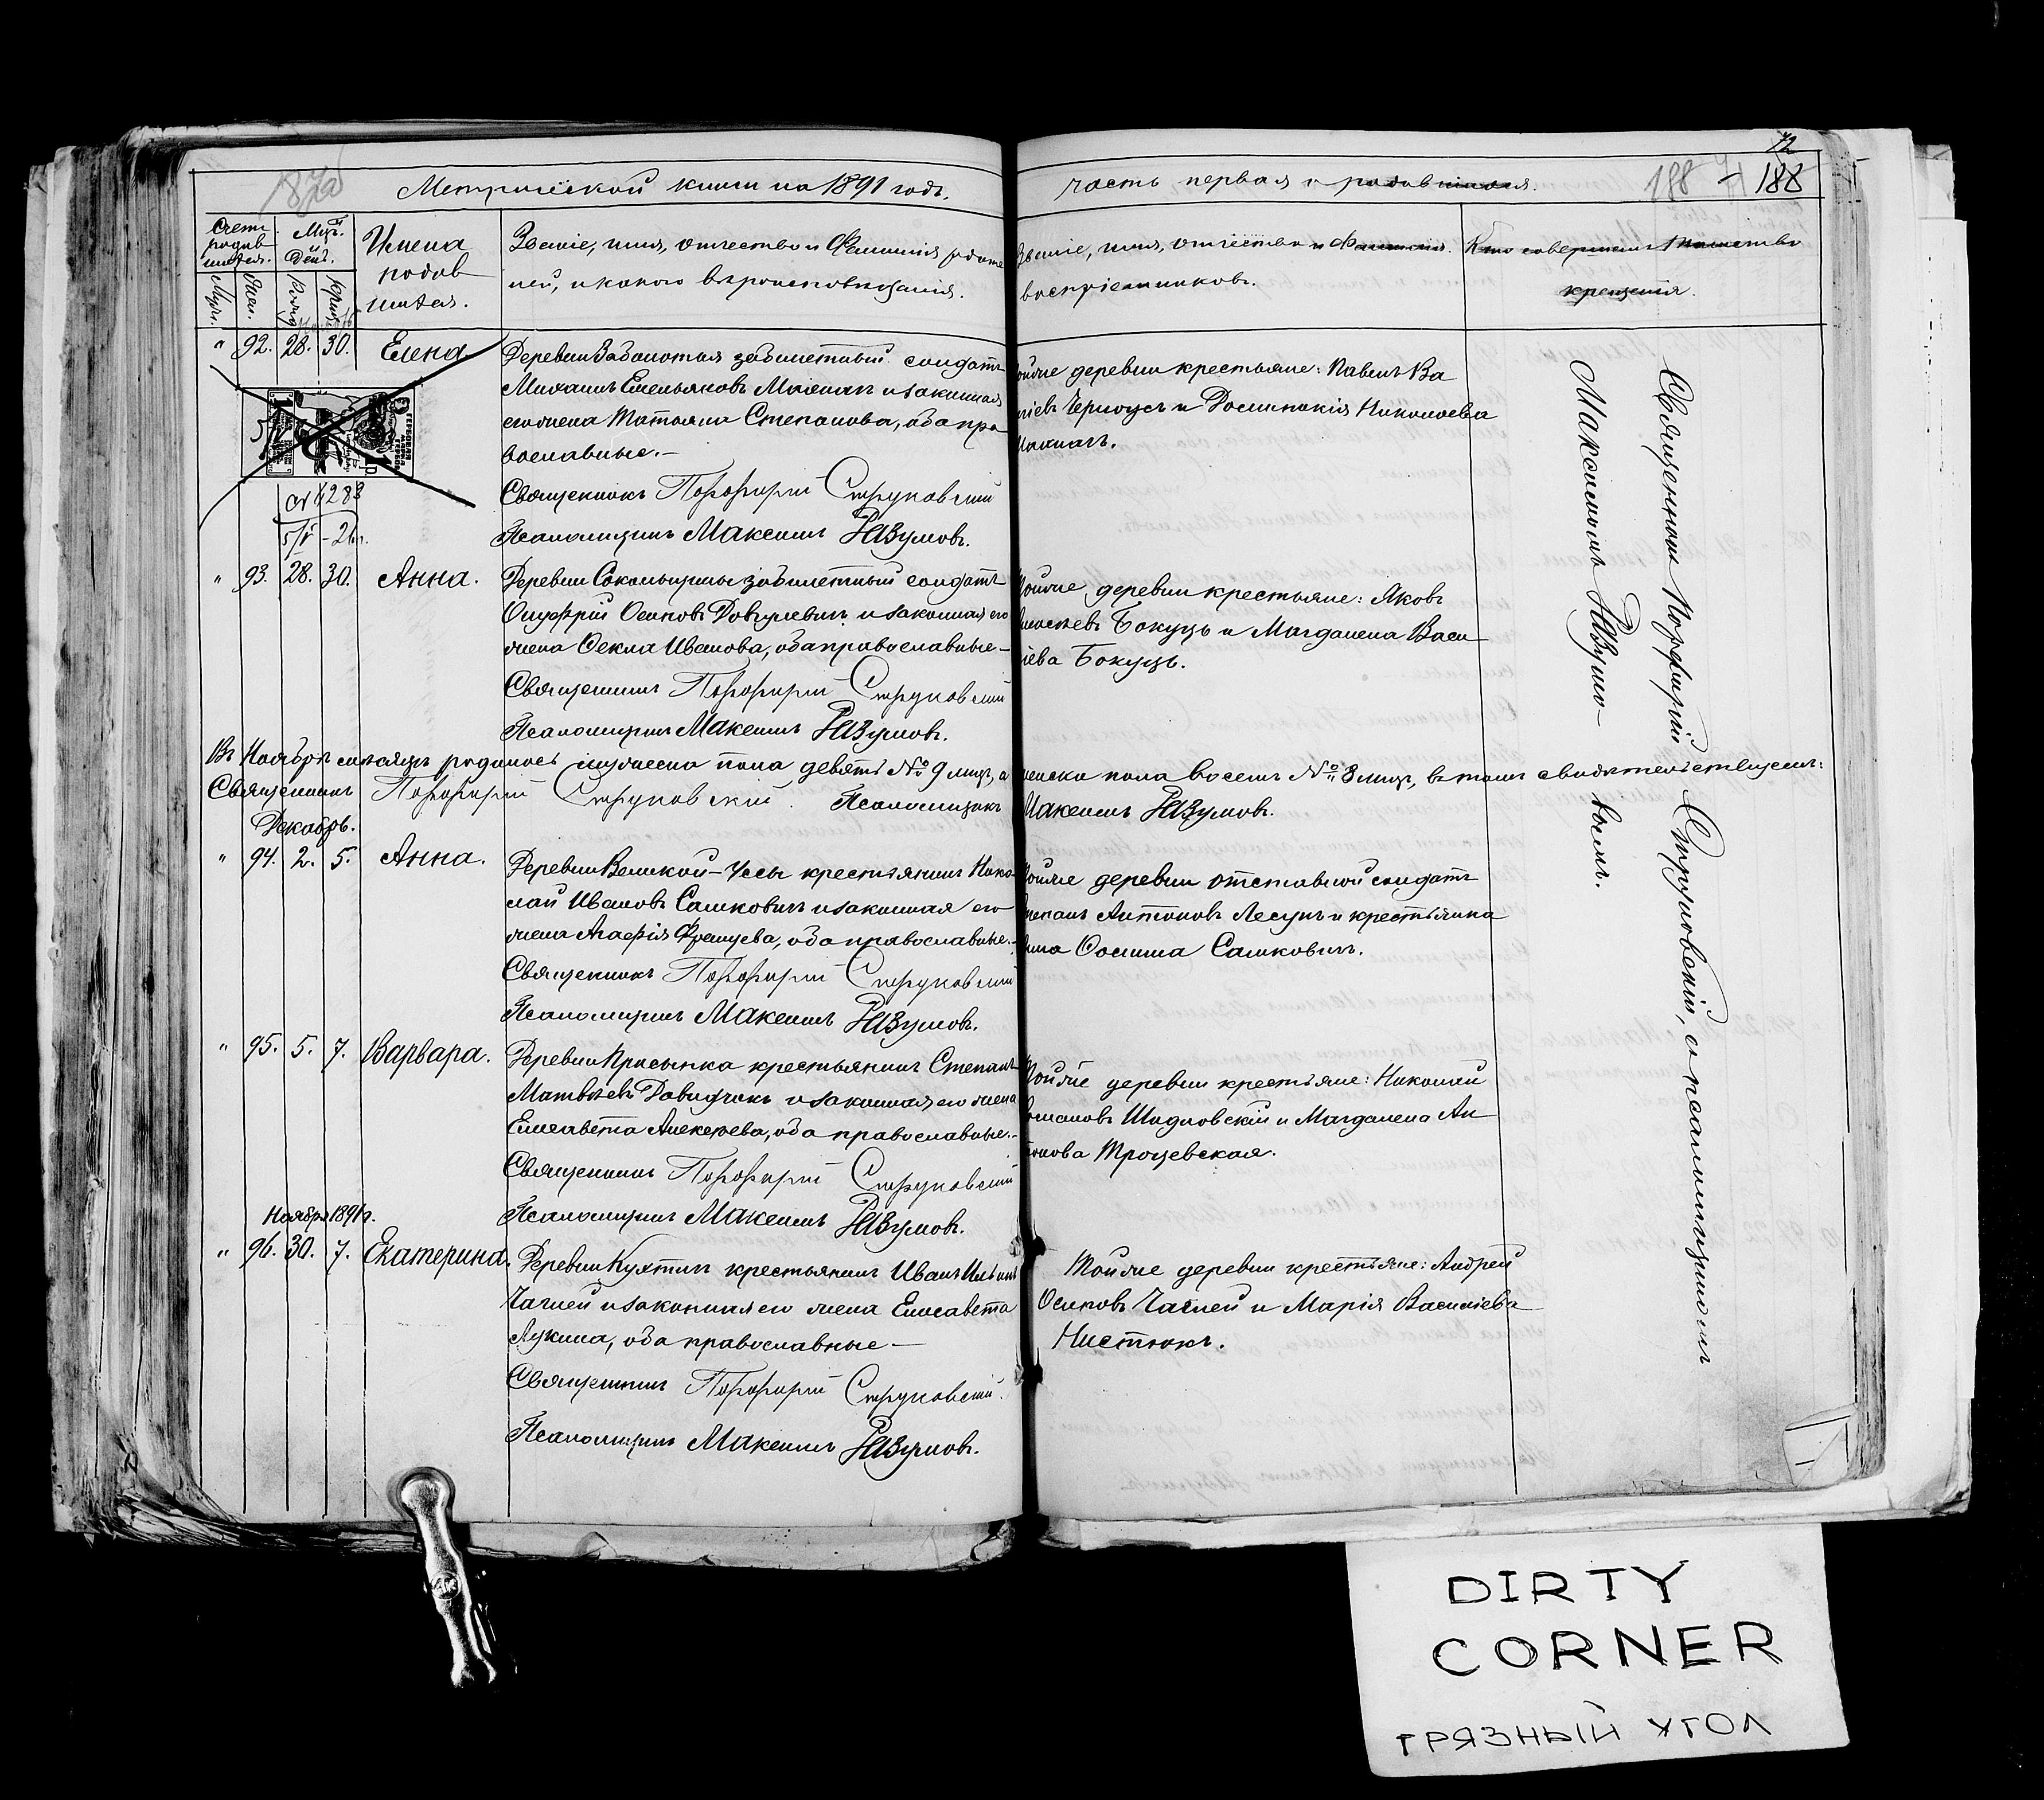 72
187об
188
188
Метрической книги на 1891 годъ.
часть первая о родившихся.
Счетъ родив шихся.
Мцъ. и День.
Имена родив шихся.
Званіе, имя, отчество и Фамилія родите
лей, и какого вѣроисповѣданія.
Званіе, имя, отчество и Фамилія
воспріемниковъ.
Кто совершалъ таинство
крещенія.
Муж.
Жен.
Рожд.
Крещ.
" 92. 28. 30. Елена
Деревни Заболотья забилетный солдатъ
Михаилъ Емельяновъ и законная
его жена Татьяна Степанова, оба пра
вославные.—
Священникъ Порфирій Струковскій
Псаломщикъ Максимъ Разумовъ.
5/V
№ 4283
5/V - 26г.
деревни крестьяне: Павелъ Ва
Черноусъ и Николаева
" 93. 28. 30. Анна.
Деревни забилетный солдатъ
Онуфрій Осиповъ Довгулевичъ и законная его
жена Ѳекла Иванова, оба православные—
Священникъ Порфирій Струковскій
Псаломщикъ Максимъ Разумовъ.
деревни крестьяне: Яковъ
Бокуць и Магдалена Васи
ьева Бокуць.
Въ Ноябрѣ мѣсяцѣ родилось мужеска пола девять № 9 лицъ, а
женска пола восемь № 8 лицъ, въ томъ свидѣтельствуемъ:
Священникъ Порфирій Струковскій. Псаломщикъ
Максимъ Разумовъ.
Декабрь.
" 94. 2. 5. Анна.
Деревни Великой-Усы крестьянинъ Нико
лай Ивановъ Сашковичъ и законная его
жена Агафія оба православные.—
Священникъ Порфирій Струковскій
Псаломщикъ Максимъ Разумовъ.
деревни отставной солдатъ
Антоновъ Лесунъ и крестьянка
Сашковичъ.
" 95. 5. 7. Варвара.
Деревни крестьянинъ Степанъ
Матвѣевъ Давидчикъ и законная его жена
Елисавета Алексѣева, оба православные.—
Священникъ Порфирій Струковскій
Псаломщикъ Максимъ Разумовъ.
Той же деревни крестьяне: Николай
Шидловскій и Магдалена Ан
тонова Троцевская.
Ноября 1891 г.
" 96. 30. 7. Екатерина.
Деревни Кухтичъ крестьянинъ Иванъ Ильинъ
Чагіей и законная его жена Елисавета
Лукина, оба православные—
Священникъ Порфирій Струковскій.
Псаломщикъ Максимъ Разумовъ.
Той же деревни крестьяне: Андрей
Осиповъ Чагіей и Марія Васильева
Нистюкъ.
Священникъ Порфирій Струковскій, съ псаломщикомъ
Максимомъ Разумо— вымъ.
DIRTY
CORNER
ГРЯЗНЫЙ УГОЛ